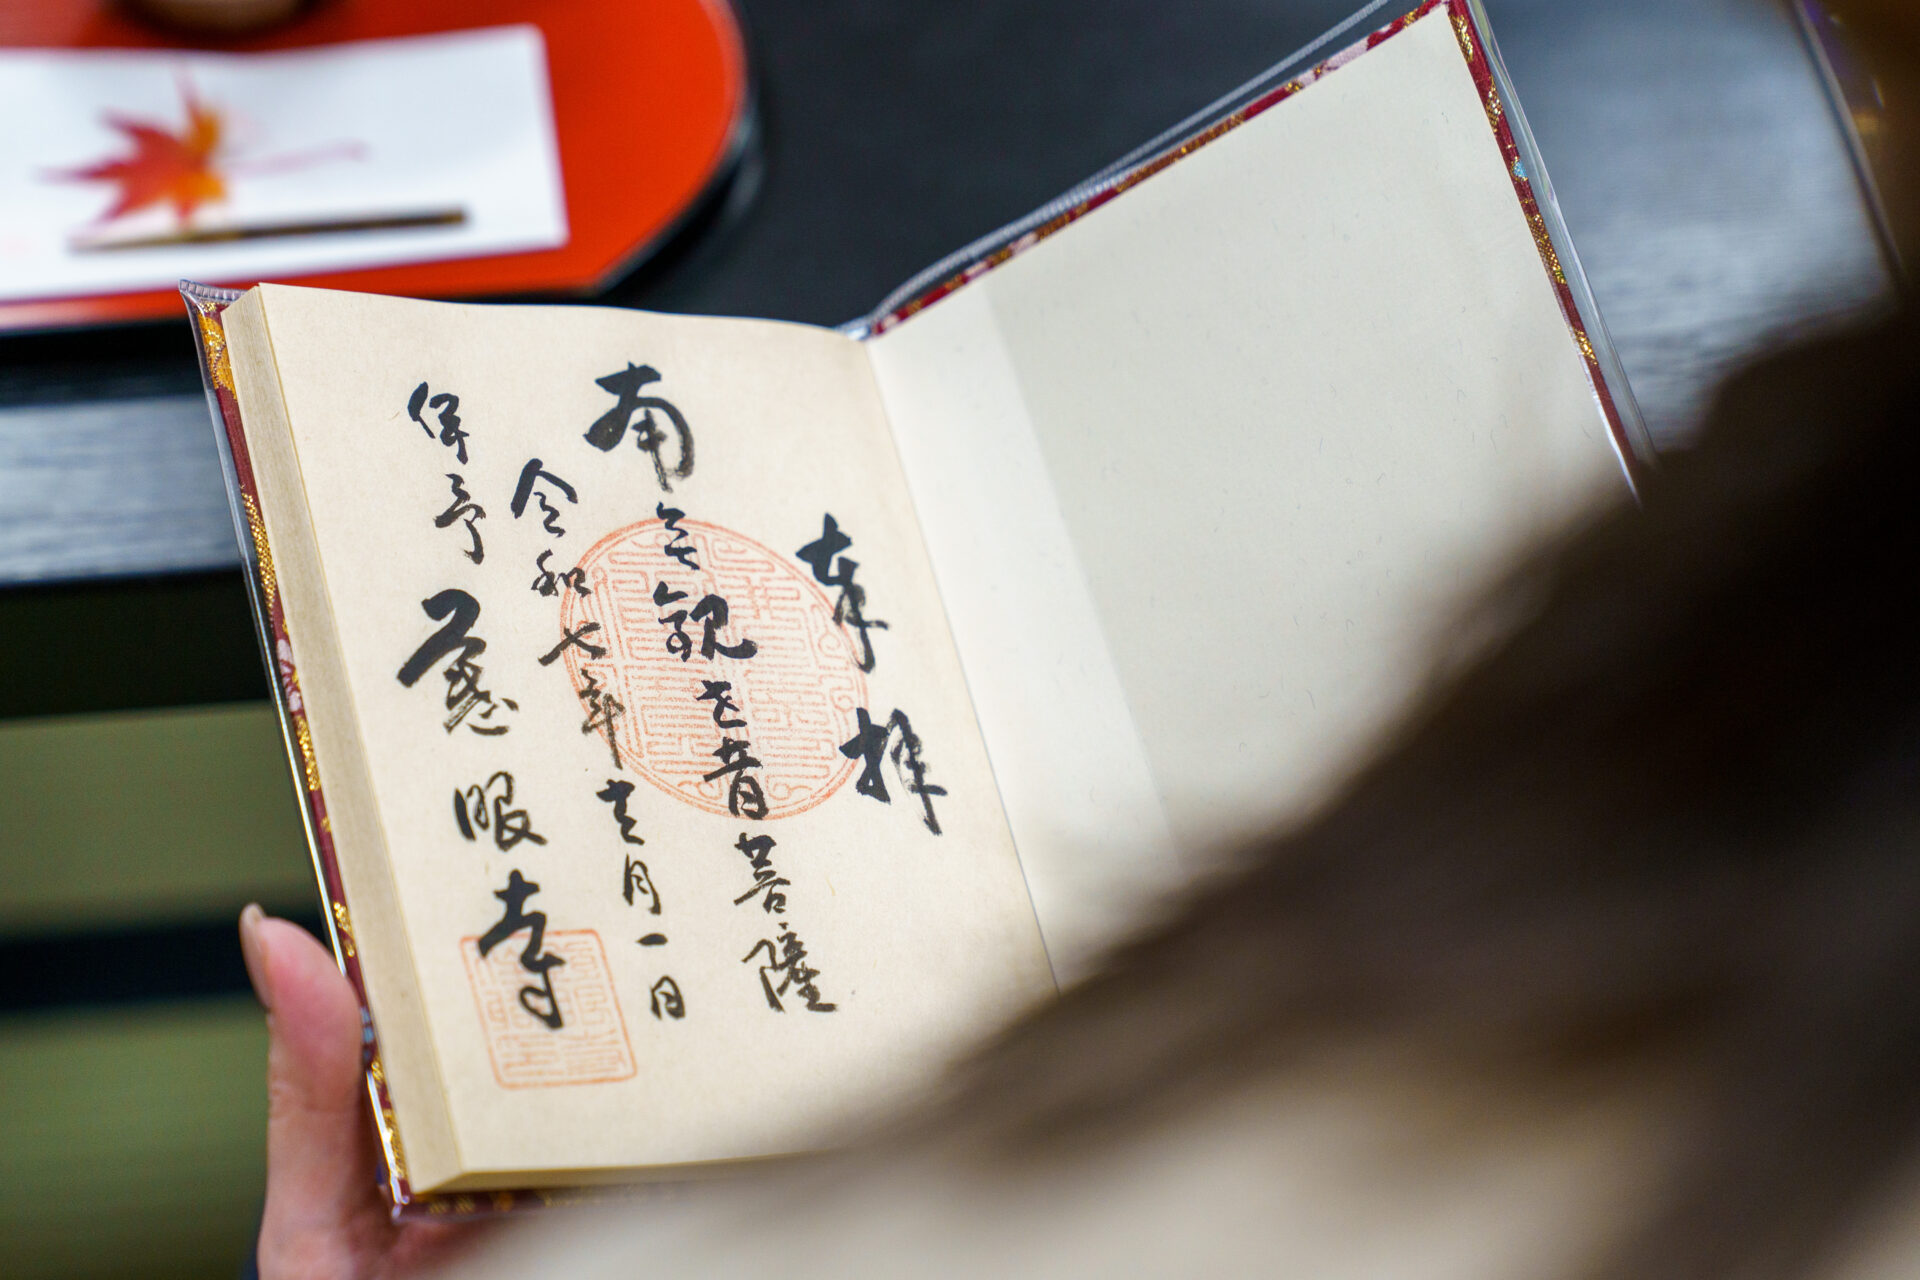 奉拝
南無観世音菩薩
令和七年十二月一日
伊予 慈眼寺